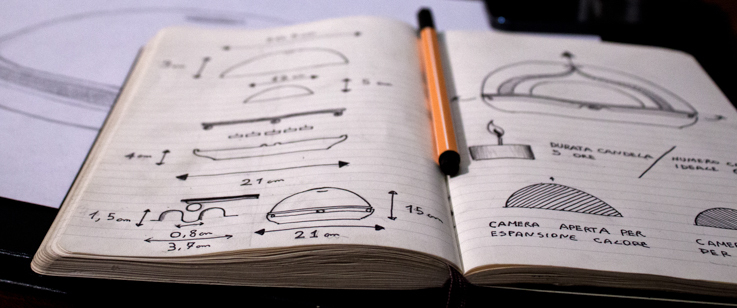 5 cm
4 cm
21 cm
1,5 cm
0,8 cm
3,7 cm
15 cm
21 cm
DURATA CANDELA
5 ORE
NUMERO
IDEALE
CAMERA APERTA PER
ESPANSIONE CALORE
PER